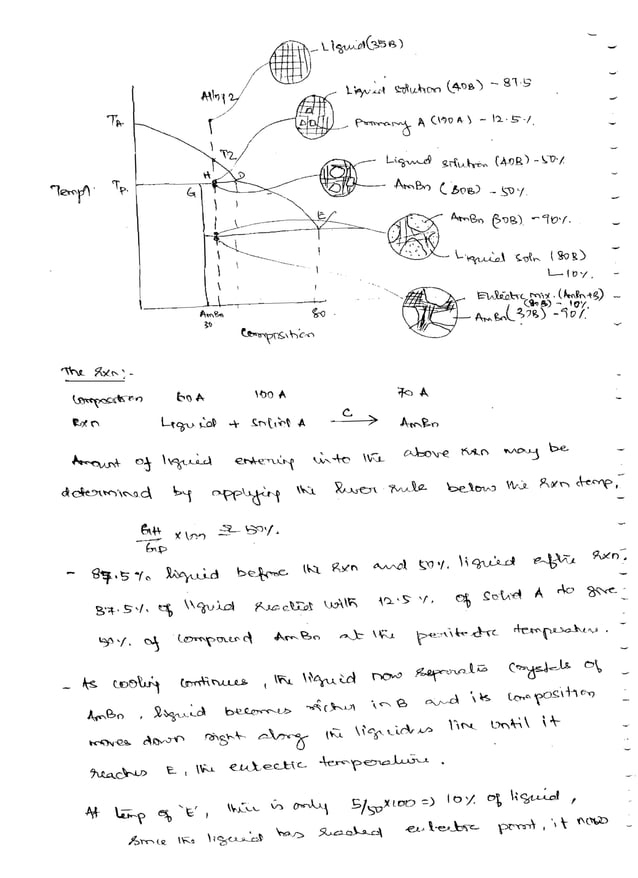 Liquid (35B)
Alloy 2
Liquid solution (40B) - 87.5
Primary A (100A) - 12.5%
TA
T2
Liquid solution (40B) - 50%
H
D
AmBn (30B) - 50%
Temp↑.
Tp
G
E
AmBn (30B) - 90%.
Liquid soln (80B)
10%.
Eutectic mix. (AmBn+B)
(80B) - 10%
AmBn (30B) - 90%
AmBn
30
80
Composition
The Rxn:-
Composition 60A 100A 70A
Rxn Liquid + Solid A C→ AmBn
Amount of liquid entering into the above rxn may be
determined by applying the lever rule below the rxn temp.
GH/GD × 100 = 50%.
- 87.5% liquid before the rxn and 50% liquid after rxn.
37.5% of liquid reacted with 12.5% of solid A to give
50% of compound AmBn at the peritectic temperature.
- As cooling continues, the liquid now separates crystals of
AmBn, liquid becomes richer in B and its composition
moves down right along the liquidus line until it
reaches E, the eutectic temperature.
At temp of 'E', there is only 5/50×100 => 10% of liquid,
since the liquid has reached eutectic point, it now